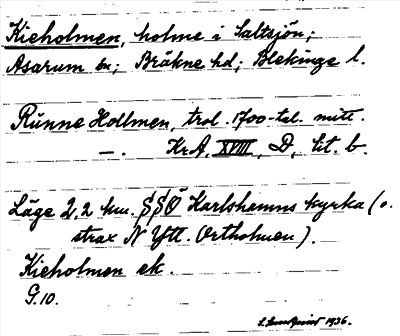 Kieholmen, holme i Saltsjön;
Asarum sn; Bräkne hd; Blekinge l.
Runne Hollmen, trol. 1700-tal. mitt.
—. KrA, XVIII, D, lit. b.
Läge 2,2 km. SSÖ Karlshamns kyrka (o.
strax N Ytt. Ortholmen).
Kieholmen ek.
G.10.
1936.